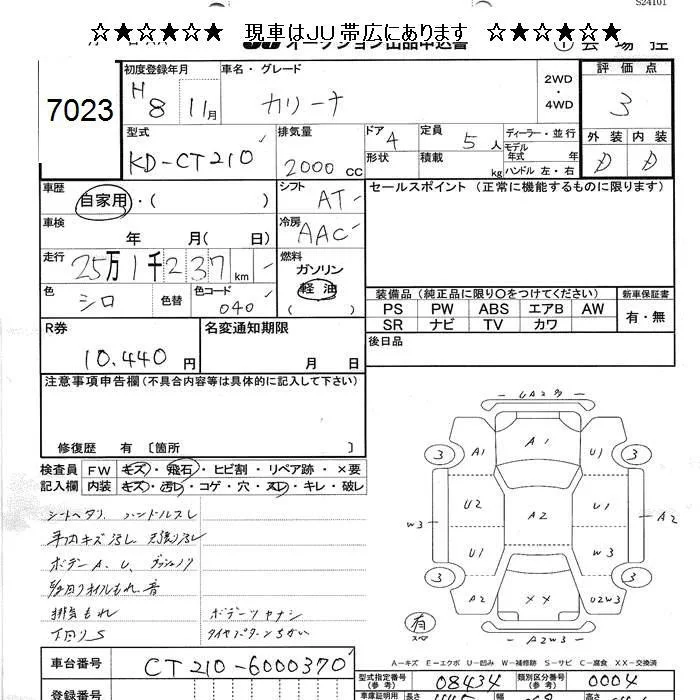 S24101
☆★☆★☆★　現車はJU帯広にあります　☆★☆★☆★
JU オークション出品申込書
① 会場控
7023
初度登録年月
H8 11月
車名・グレード
カリーナ
2WD
・
4WD
評価点
3
型式
KD-CT210
排気量
2000 cc
ドア 4
形状
定員 5 人
積載 kg
ディーラー・並行
モデル年式 年
ハンドル 左・右
外装 内装
D D
車歴
自家用・( )
シフト
AT
セールスポイント (正常に機能するものに限ります)
車検
年 月( 日)
冷房
AAC
走行
25万1千237 km
燃料
ガソリン
軽油
色
シロ
色替
色コード
040
装備品 (純正品に限り○をつけてください)
PS PW ABS エアB AW
SR ナビ TV カワ
新車保証書
有・無
R券
10,440 円
名変通知期限
月 日
後日品
注意事項申告欄 (不具合内容等は具体的に記入して下さい)
修復歴 有 〔箇所 〕
検査員 FW キズ・飛石・ヒビ割・リペア跡・×要
記入欄 内装 キズ・汚れ・コゲ・穴・スレ・キレ・破レ
シートヘタリ ハンドルスレ
ボデーA、U、
排気もれ
下回りS
タイヤパターンちがい
UA2
A1 A1 U1
3 3
U2 A2 U1
W3 A2
U1 W3
3 3
A2 XX U2W3
有
A2W3
A-キズ E-エクボ U-凹み W-補修跡 S-サビ C-腐食 XX-交換済
車台番号
CT210-6000370
型式指定番号
08434
類別区分番号
0004
登録番号
車庫証明用
長さ
幅
高さ